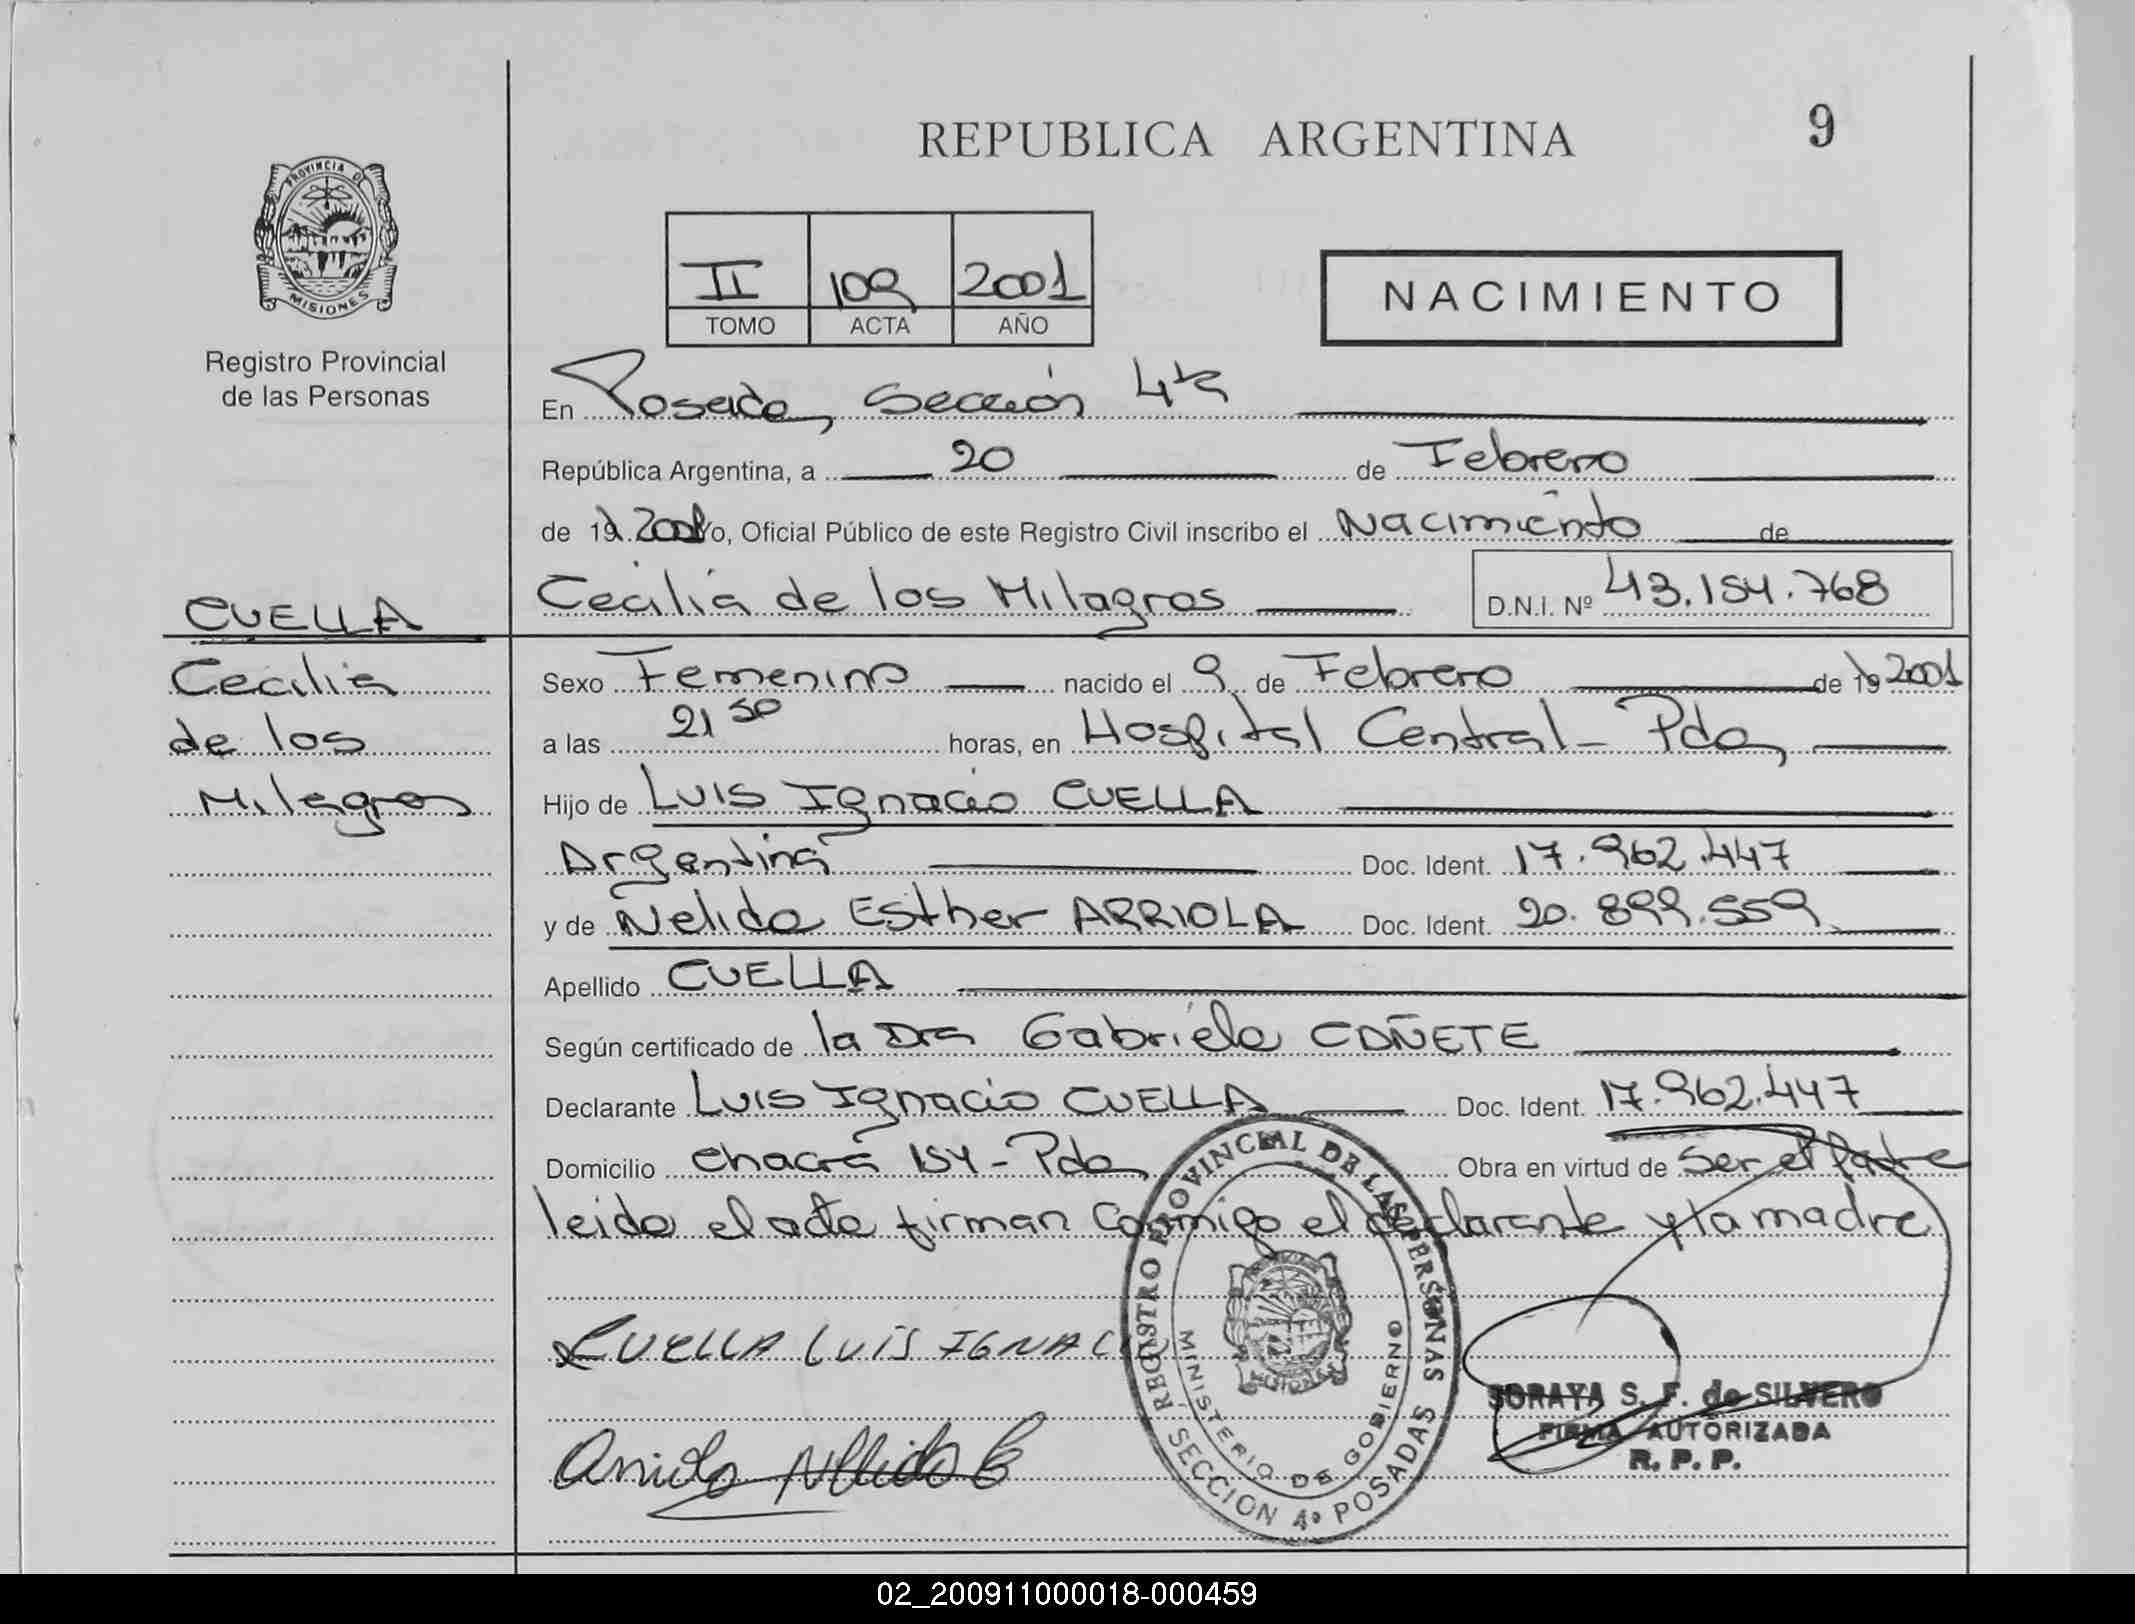 REPUBLICA ARGENTINA
9
PROVINCIA DE
MISIONES
Registro Provincial
de las Personas
II 109 2001
TOMO ACTA AÑO
NACIMIENTO
En Posadas, Sección 4ta
República Argentina, a 20 de Febrero
de 19 2001 Yo, Oficial Público de este Registro Civil inscribo el Nacimiento de
Cecilia de los Milagros D.N.I. Nº 43.154.768
CUELLA
Cecilia
de los
Milagros
Sexo Femenino nacido el 9 de Febrero de 19 2001
a las 21 50 horas, en Hospital Central - Pdas
Hijo de Luis Ignacio CUELLA
Argentina Doc. Ident. 17.962.447
y de Nelida Esther ARRIOLA Doc. Ident. 20.899.559
Apellido CUELLA
Según certificado de la Dra Gabriela CAÑETE
Declarante Luis Ignacio CUELLA Doc. Ident. 17.962.447
Domicilio chacra 154 - Pdas Obra en virtud de ser el Padre
leida el acta firman conmigo el declarante y la madre
CUELLA LUIS IGNAC
REGISTRO PROVINCIAL DE LAS PERSONAS
MINISTERIO DE GOBIERNO
SECCION 4º POSADAS
SORAYA S. F. de SILVERO
FIRMA AUTORIZADA
R. P. P.
02_200911000018-000459